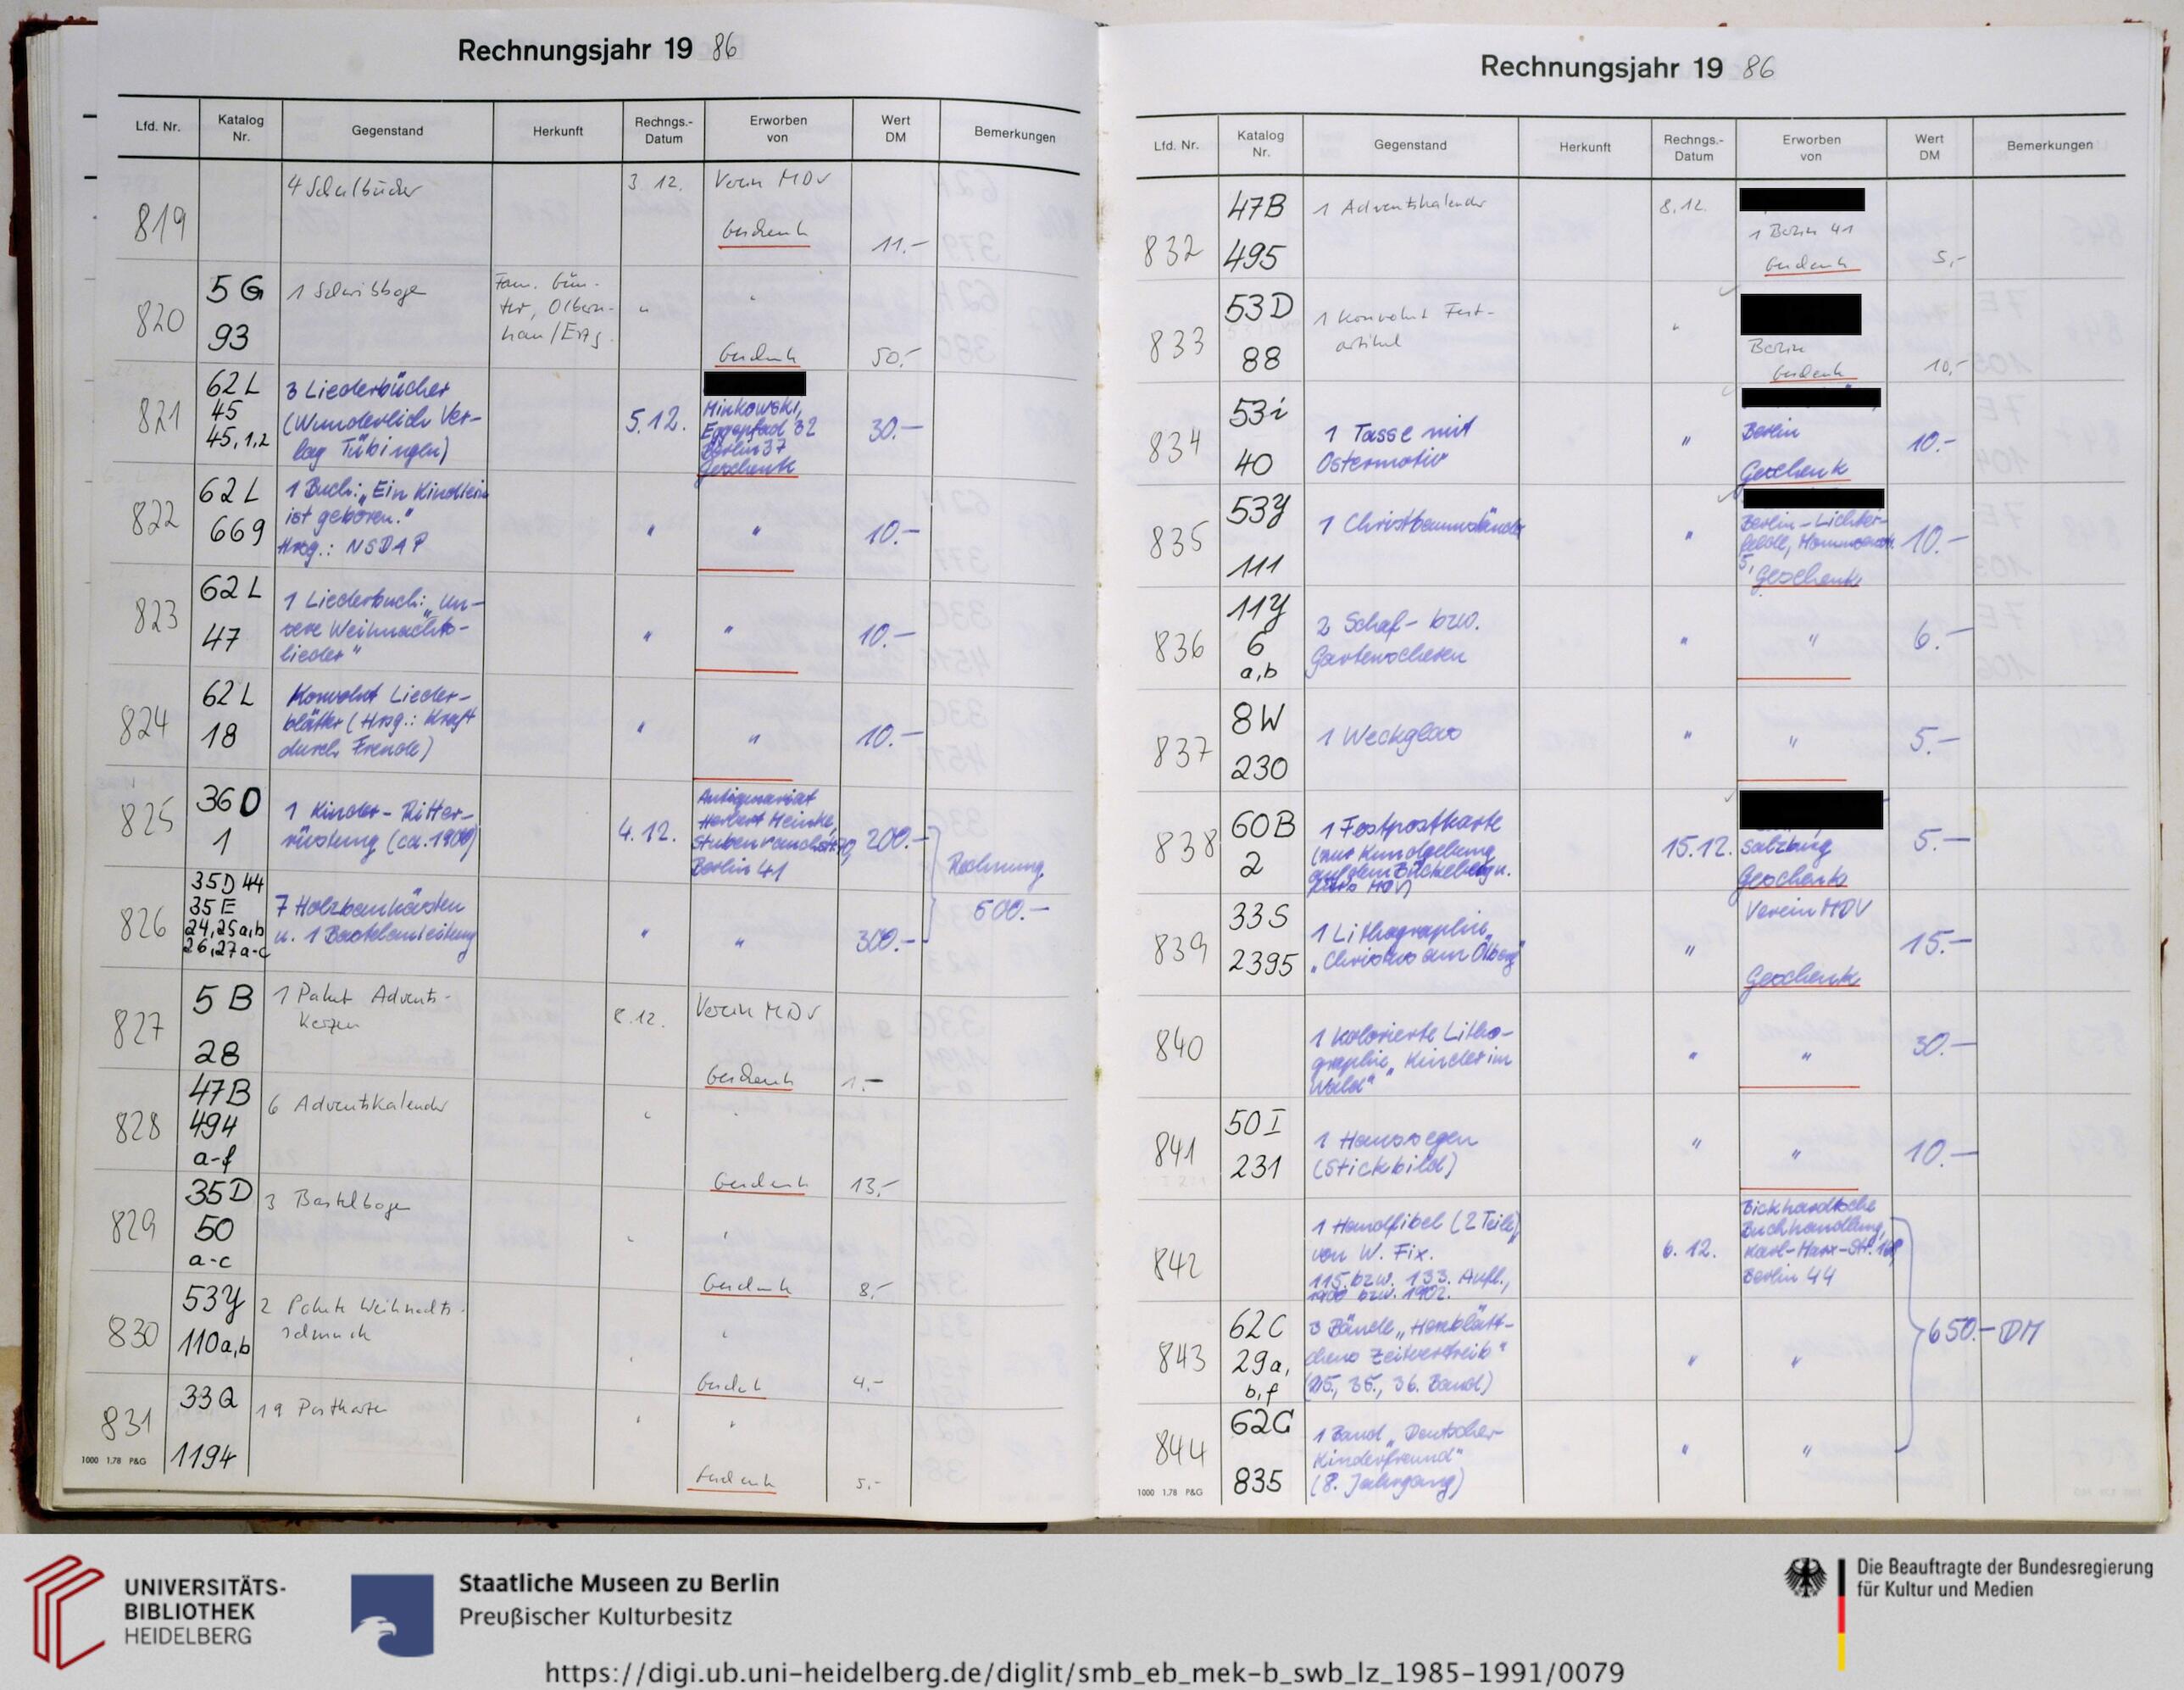 Rechnungsjahr 19 86
Lfd. Nr. Katalog Nr. Gegenstand Herkunft Rechngs.-Datum Erworben von Wert DM Bemerkungen
819 4 Schulbücher 3.12. Verein MDV
Geschenk 11.-
820 5 G 1 Schwibbogen Fam. Gün-
ter, Olbern- "
93 hau/Erzg.
Geschenk 50.-
821 62 L 3 Liederbücher
45 (Wunderlich Ver- 5.12. Minkowski,
45,1,2 lag Tübingen) Eggepfad 32 30.-
Berlin 37
Geschenk
822 62 L 1 Buch: „Ein Kindlein
669 ist geboren." " " 10.-
Hrsg.: NSDAP
823 62 L 1 Liederbuch: „Un-
47 sere Weihnachts- " " 10.-
lieder"
824 62 L Konvolut Lieder-
18 blätter (Hrsg.: Kraft " " 10.-
durch Freude)
825 36 D 1 Kinder-Ritter- Antiquariat
1 rüstung (ca. 1900) 4.12. Herbert Meinke, 200.-
Berlin 41 Rechnung
826 35D 44
35 E 7 Holzbaukästen 500.-
24,25a,b u. 1 Bastelanleitung " " 300.-
26,27a-c
827 5 B 1 Paket Advents-
kerzen 8.12. Verein MDV
28 Geschenk 1.-
828 47B 6 Adventskalender " "
494
a-f Geschenk 13.-
829 35D 3 Bastelbogen
50 " "
a-c Geschenk 8.-
830 53y 2 Pakete Weihnachts-
110a,b schmuck " "
Geschenk 4.-
831 33Q 19 Postkarten " "
1194 Geschenk 5.-
1000 1.78 P&G
Rechnungsjahr 19 86
Lfd. Nr. Katalog Nr. Gegenstand Herkunft Rechngs.-Datum Erworben von Wert DM Bemerkungen
832 47B 1 Adventskalender 8.12.
1 Berlin 41
495 Geschenk 5,-
833 53D 1 Konvolut Fest-
artikel "
88 Berlin
Geschenk 10,-
834 53i 1 Tasse mit Berlin
40 Ostermotiv " Geschenk 10.-
835 53y 1 Christbaumständer " Berlin-Lichter-
felde, 10.-
111 5, Geschenk
836 11y 2 Schaf- bzw.
6 Gartenscheren " " 6.-
a,b
837 8W 1 Weckglas " " 5.-
230
838 60B 1 Festpostkarte
2 (zur Kundgebung 15.12. Salzburg 5.-
auf dem Bückeberg
Geschenk
839 33S 1 Lithographie Verein MDV
2395 „Christus am Ölberg" " 15.-
Geschenk
840 1 kolorierte Litho-
graphie „Kinder im " " 30.-
Wald"
841 50I 1 Haussegen
231 (Stickbild) " " 10.-
842 1 Handfibel (2 Teile) Bickhardtsche
von W. Fix. 6.12. Buchhandlung,
115. bzw. 133. Aufl., Karl-Marx-Str.
1900 bzw. 1902. Berlin 44
843 62C 3 Bände „Herzblätt-
29a, chens Zeitvertreib" " " 650.- DM
b,f (25., 35., 36. Band)
844 62C 1 Band „Deutscher
Kinderfreund" " "
835 (8. Jahrgang)
1000 1.78 P&G
UNIVERSITÄTS-
BIBLIOTHEK
HEIDELBERG
Staatliche Museen zu Berlin
Preußischer Kulturbesitz
Die Beauftragte der Bundesregierung
für Kultur und Medien
https://digi.ub.uni-heidelberg.de/diglit/smb_eb_mek-b_swb_lz_1985-1991/0079